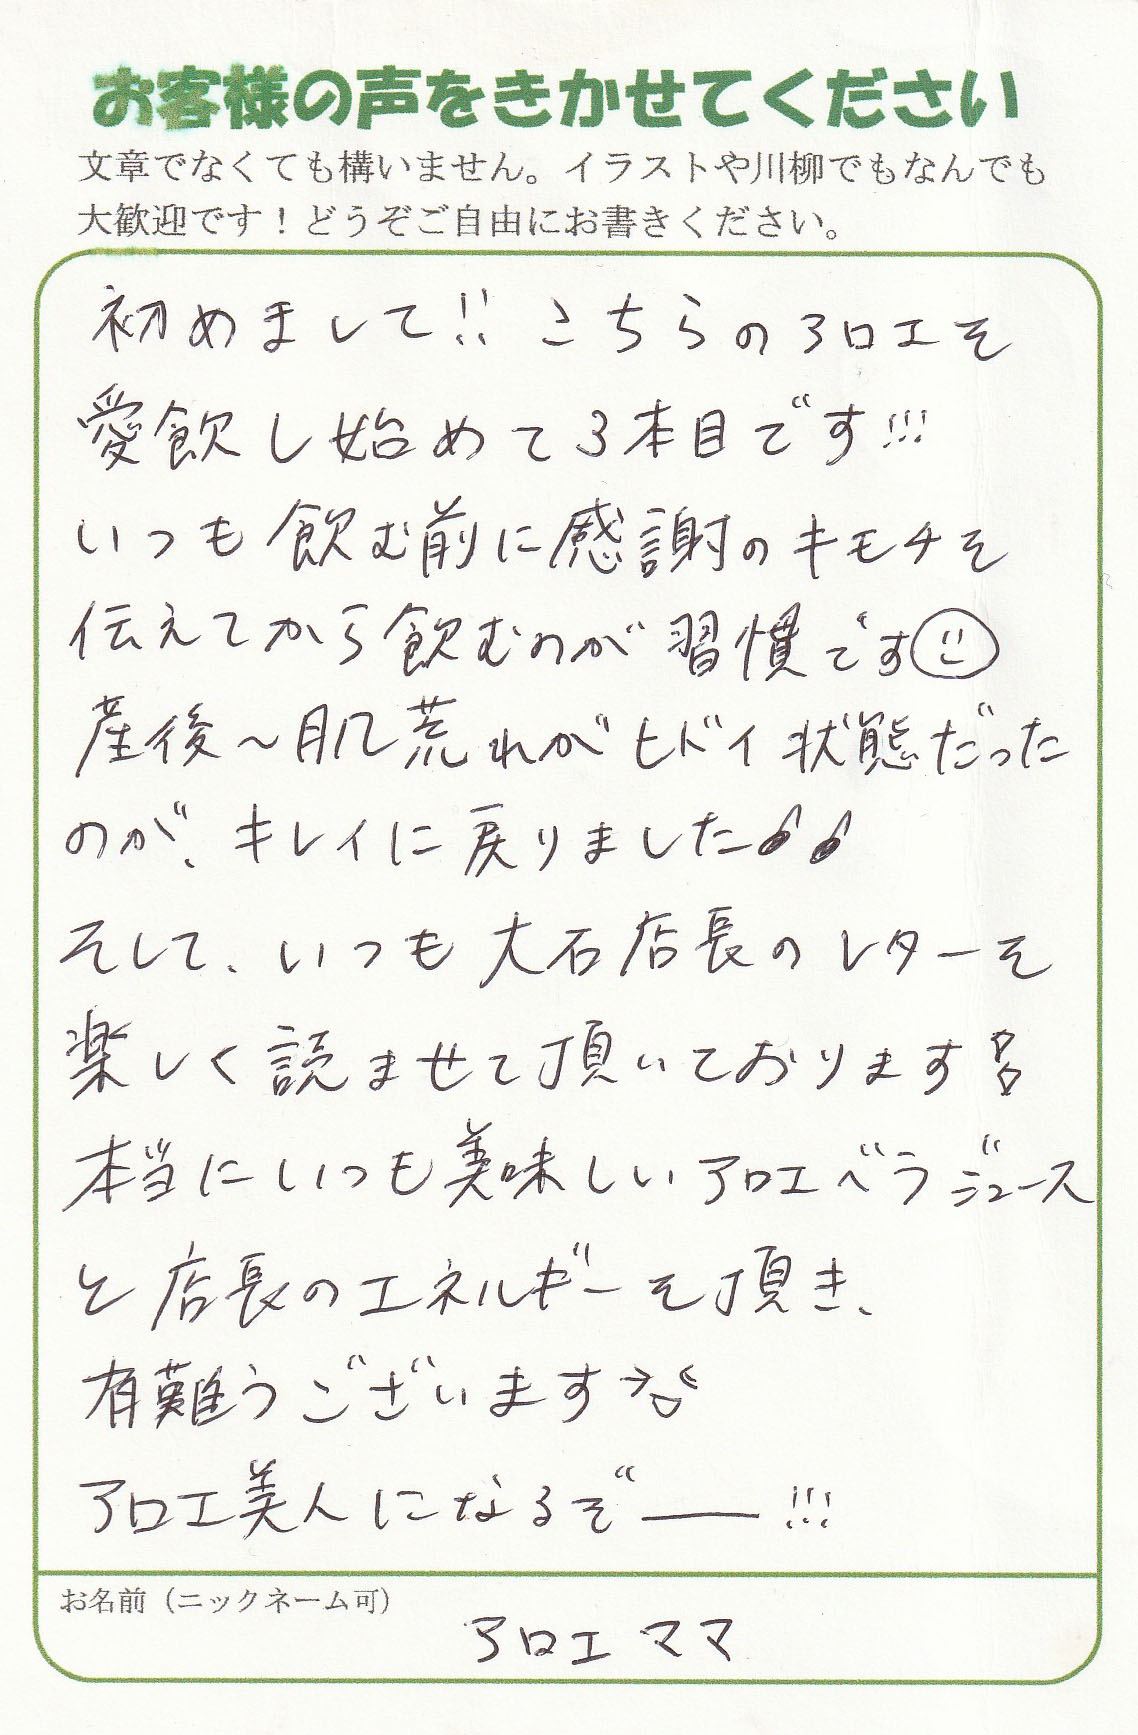 お客様の声をきかせてください
文章でなくても構いません。イラストや川柳でもなんでも
大歓迎です！どうぞご自由にお書きください。
初めまして!! こちらのアロエを
愛飲し始めて3本目です!!!
いつも飲む前に感謝のキモチを
伝えてから飲むのが習慣です
産後～肌荒れがヒドイ状態だった
のが、キレイに戻りました
そして、いつも大石店長のレターを
楽しく読ませて頂いております
本当にいつも美味しいアロエベラジュース
と店長のエネルギーを頂き、
有難うございます
アロエ美人になるぞー!!!
お名前（ニックネーム可）
アロエママ